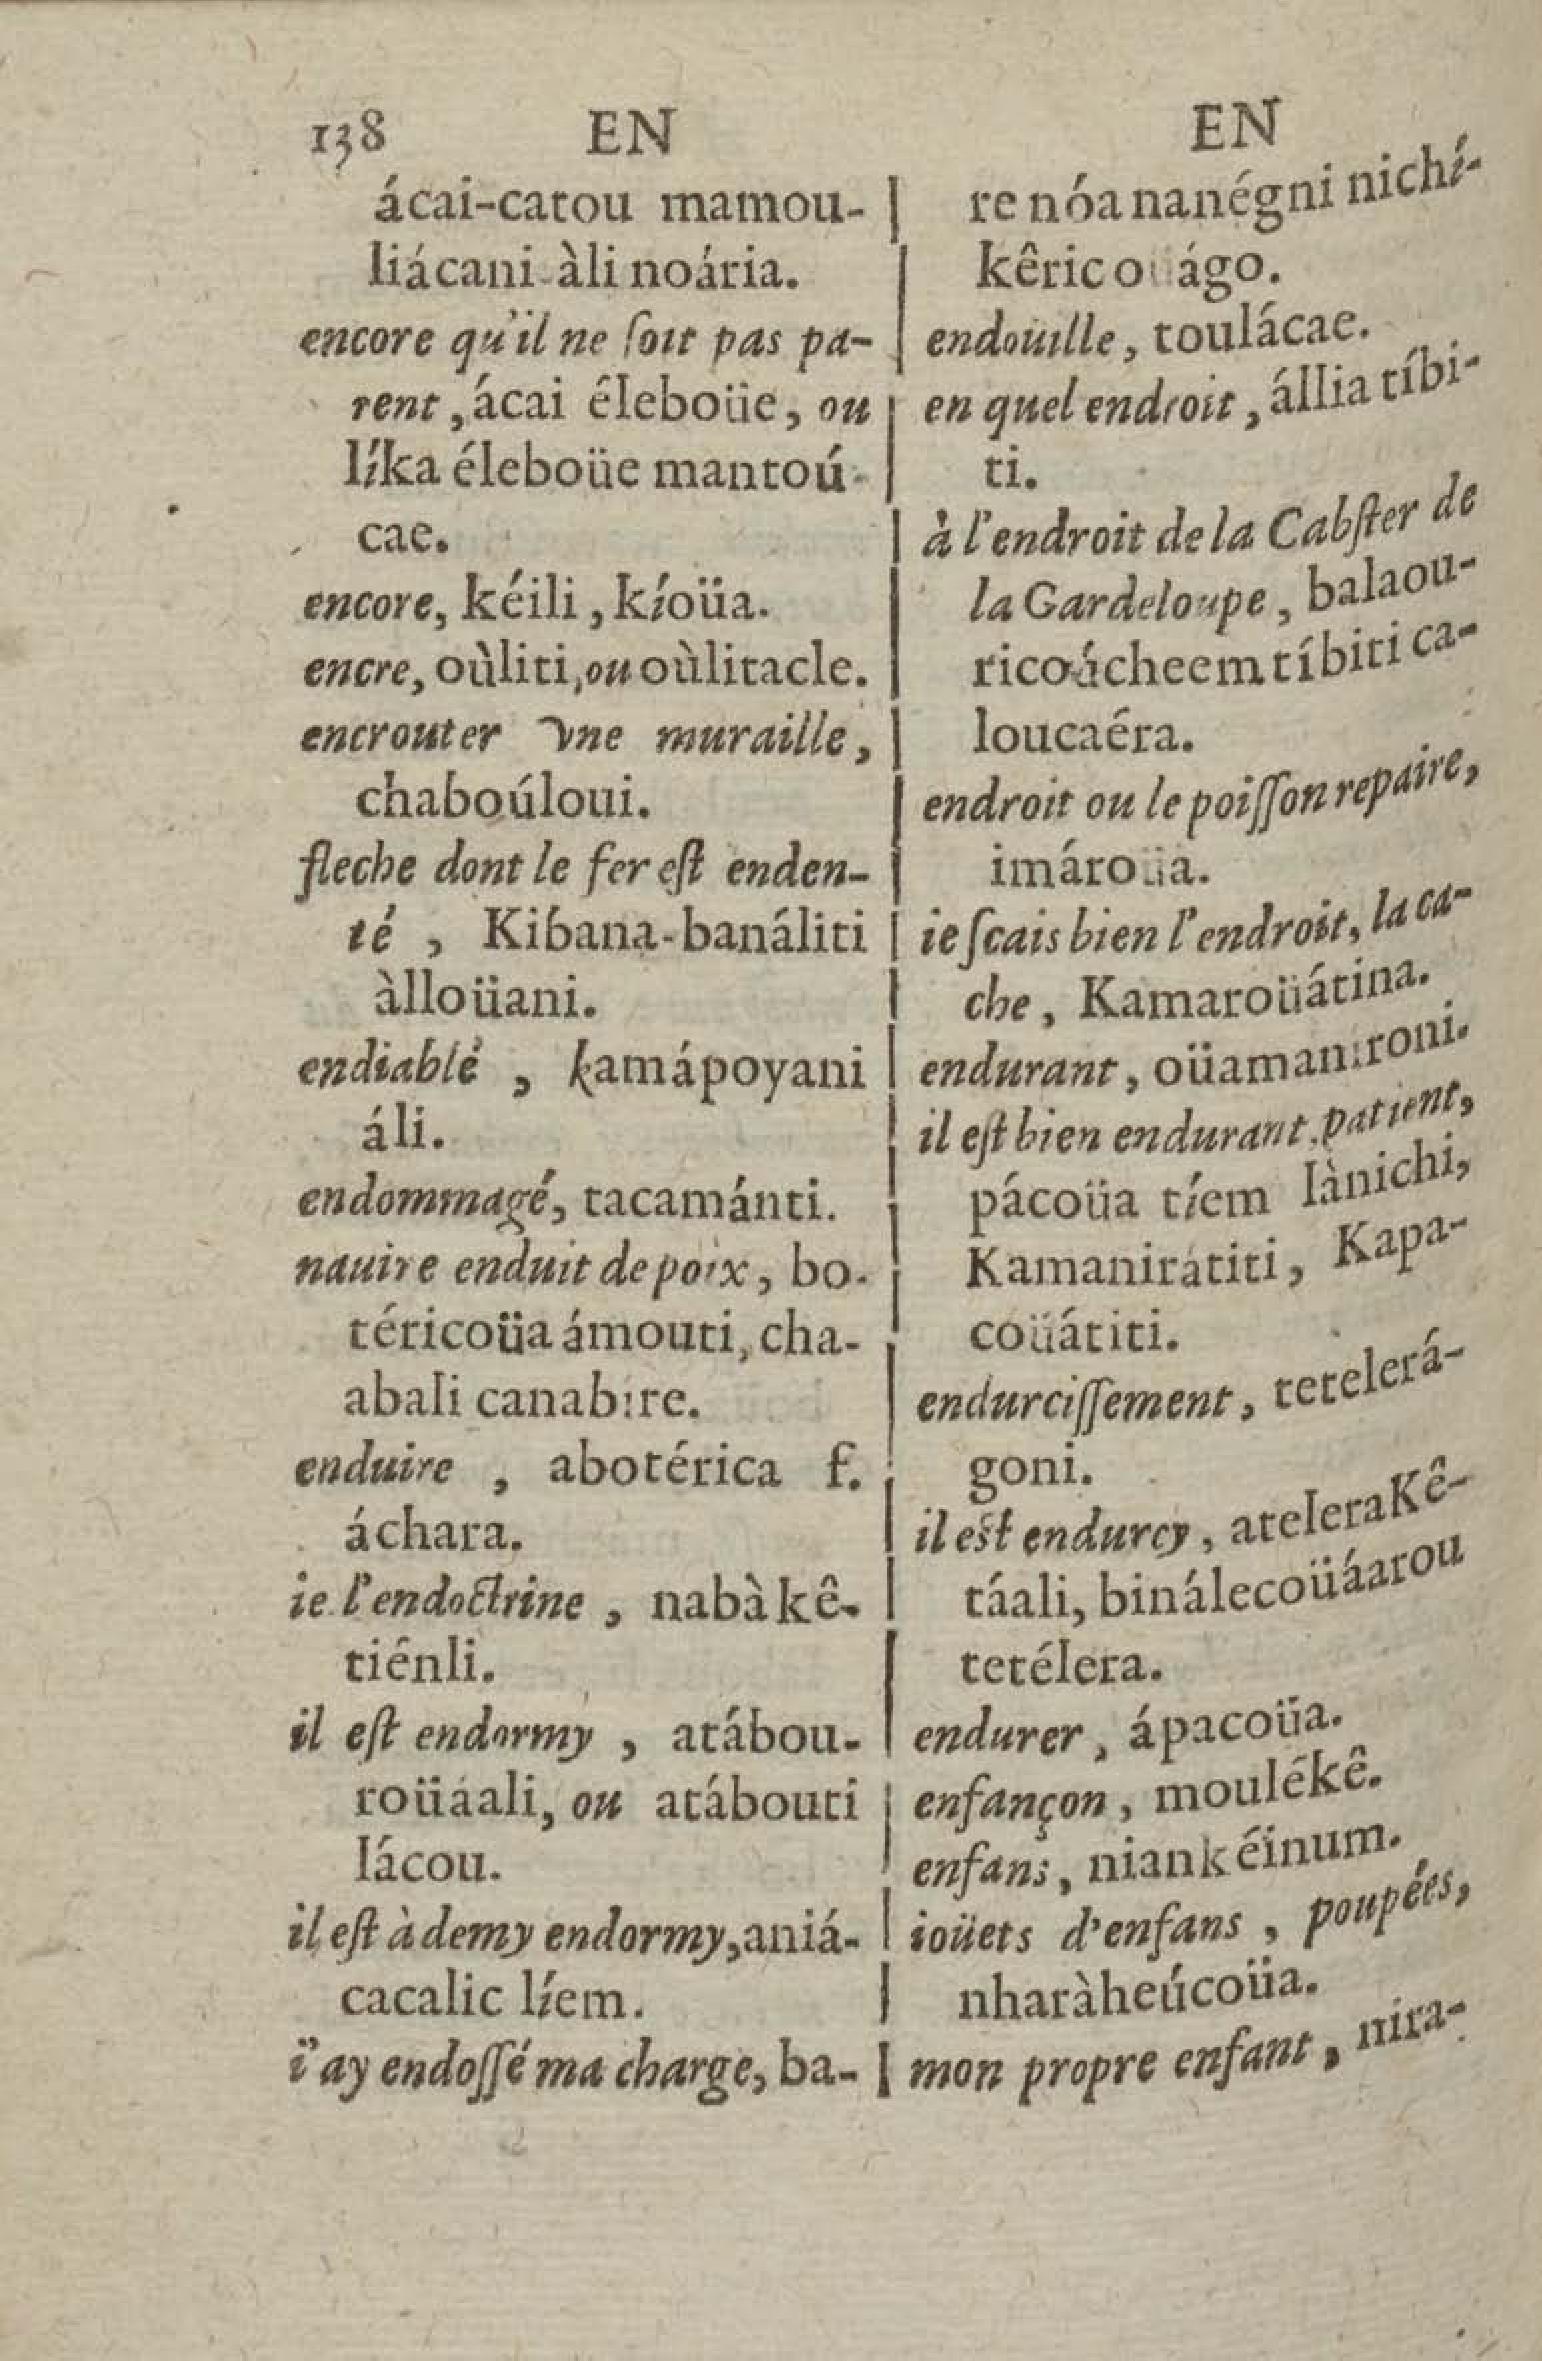 138 EN EN
ácai-catou mamou-
liácani àli noária.
encore qu'il ne ſoit pas pa-
rent, ácai éleboüe, ou
líka éleboüe mantoú-
cae.
encore, kéili, kíoüa.
encre, oùliti, ou oùlitacle.
encrouter vne muraille,
chaboúloui.
fleche dont le fer eſt enden-
té, Kibana-banáliti
àlloüani.
endiablé, kamápoyani
áli.
endommagé, tacamánti.
nauire enduit de poix, bo-
téricoüa ámouti, cha-
abali canabire.
enduire, abotérica f.
áchara.
ie l'endoctrine, nabàkê-
tiénli.
il eſt endormy, atábou-
roüáali, ou atábouti
lácou.
il eſt à demy endormy, aniá-
cacalic líem.
i'ay endoſſé ma charge, ba-
re nóa nanégni nichí-
kêric ouágo.
endoüille, toulácae.
en quel endroit, állia tíbi-
ti.
à l'endroit de la Cabſter de
la Gardeloupe, balaou-
ricoácheem tíbiti ca-
loucaéra.
endroit ou le poiſſon repaire,
imároüa.
ie ſcais bien l'endroit, la ca-
che, Kamaroüátina.
endurant, oüamanironi.
il eſt bien endurant, patient,
pácoüa tíem Iànichi,
Kamanirátiti, Kapa-
coüátiti.
endurciſſement, tetelerá-
goni.
il eſt endurcy, ateleraKê-
táali, binálecoüáarou
tetélera.
endurer, ápacoüa.
enfançon, moulékê.
enfans, niankéinum.
ioüets d'enfans, poupées,
nharàheúcoüa.
mon propre enfant, nira-